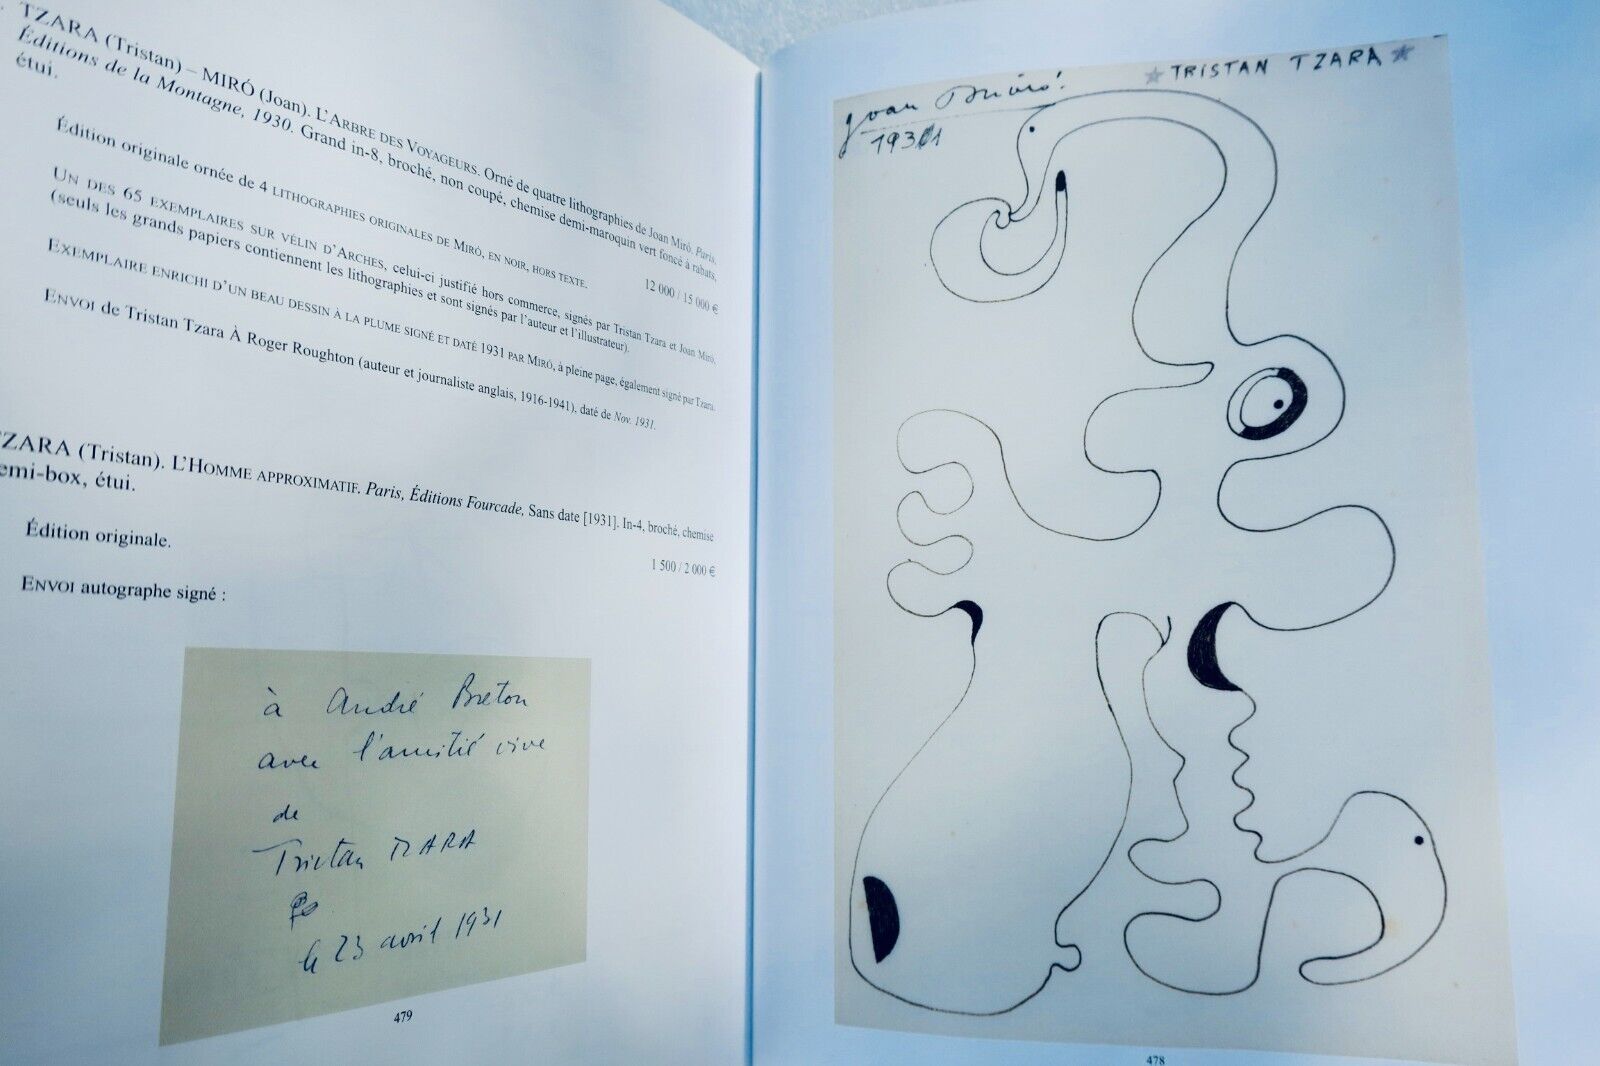 TZARA (Tristan) – MIRÓ (Joan). L'ARBRE DES VOYAGEURS. Orné de quatre lithographies de Joan Miró. Paris,
Éditions de la Montagne, 1930. Grand in-8, broché, non coupé, chemise demi-maroquin vert foncé à rabats,
étui.
12 000 / 15 000 €
Édition originale ornée de 4 LITHOGRAPHIES ORIGINALES DE MIRÓ, EN NOIR, HORS TEXTE.
UN DES 65 EXEMPLAIRES SUR VÉLIN D'ARCHES, celui-ci justifié hors commerce, signés par Tristan Tzara et Joan Miró,
(seuls les grands papiers contiennent les lithographies et sont signés par l'auteur et l'illustrateur).
EXEMPLAIRE ENRICHI D'UN BEAU DESSIN À LA PLUME SIGNÉ ET DATÉ 1931 PAR MIRÓ, à pleine page, également signé par Tzara.
ENVOI de Tristan Tzara À Roger Roughton (auteur et journaliste anglais, 1916-1941), daté de Nov. 1931.
TZARA (Tristan). L'HOMME APPROXIMATIF. Paris, Éditions Fourcade, Sans date [1931]. In-4, broché, chemise
demi-box, étui.
1 500 / 2 000 €
Édition originale.
ENVOI autographe signé :
à André Breton
avec l'amitié vive
de
Tristan TZARA
le 23 avril 1931
479
Joan Miró.
1931
TRISTAN TZARA
478